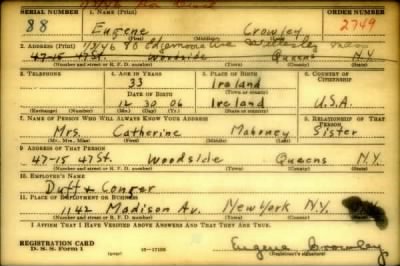 SERIAL NUMBER 1. NAME (Print) ORDER NUMBER
88 Eugene Crowley 2749
(First) (Middle) (Last)
2. ADDRESS (Print)
47-15 47 St. Woodside Queens N.Y.
(Number and street or R. F. D. number) (Town) (County) (State)
3. TELEPHONE 4. AGE IN YEARS 5. PLACE OF BIRTH 6. COUNTRY OF CITIZENSHIP
33 Ireland
DATE OF BIRTH (Town or county)
12 30 06 Ireland U.S.A.
(Exchange) (Number) (Mo.) (Day) (Yr.) (State or country)
7. NAME OF PERSON WHO WILL ALWAYS KNOW YOUR ADDRESS 8. RELATIONSHIP OF THAT PERSON
Mrs. Catherine Mahoney Sister
(Mr., Mrs., Miss) (First) (Middle) (Last)
9. ADDRESS OF THAT PERSON
47-15 47 St. Woodside Queens N.Y.
(Number and street or R. F. D. number) (Town) (County) (State)
10. EMPLOYER'S NAME
Duff + Conger
11. PLACE OF EMPLOYMENT OR BUSINESS
1142 Madison Av. New York N.Y.
(Number and street or R. F. D. number) (Town) (County) (State)
I AFFIRM THAT I HAVE VERIFIED ABOVE ANSWERS AND THAT THEY ARE TRUE.
REGISTRATION CARD
D. S. S. Form 1 16-17105 Eugene Crowley
(Registrant's signature)